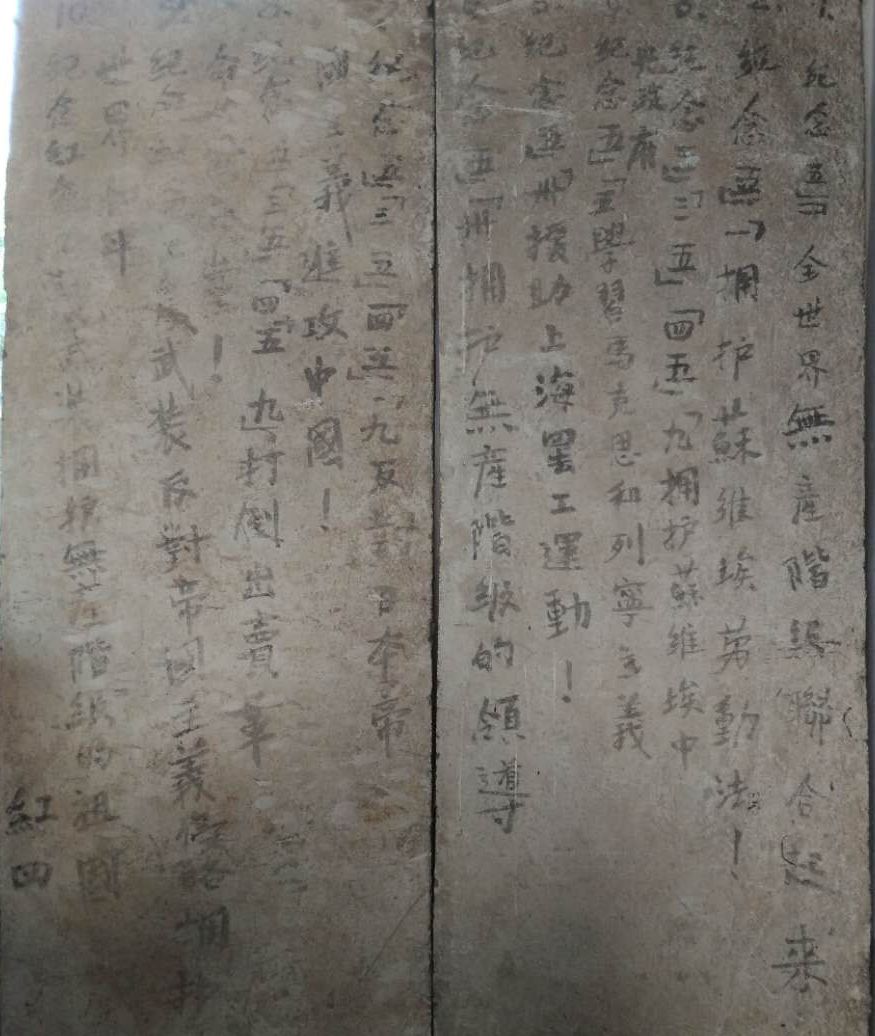 1. 紀念「五一」全世界無産階級聯合起来
2. 紀念「五一」擁护蘇维埃劳動法！
3. 紀念「五三」「五四」「五九」擁护蘇维埃中
央政府
紀念「五五」學習馬克思和列寧主義
紀念「五卅」援助上海罢工運動！
紀念「五卅」擁护無産階級的領導
紀念「五三」「五四」「五九」反對日本帝
国主義進攻中國！
紀念「五三」「五四」「五九」打倒出賣革
命
紀念 武装反對帝国主義 擁护
世界 斗
10. 紀念紅 擁护無産階級的祖國
紅四